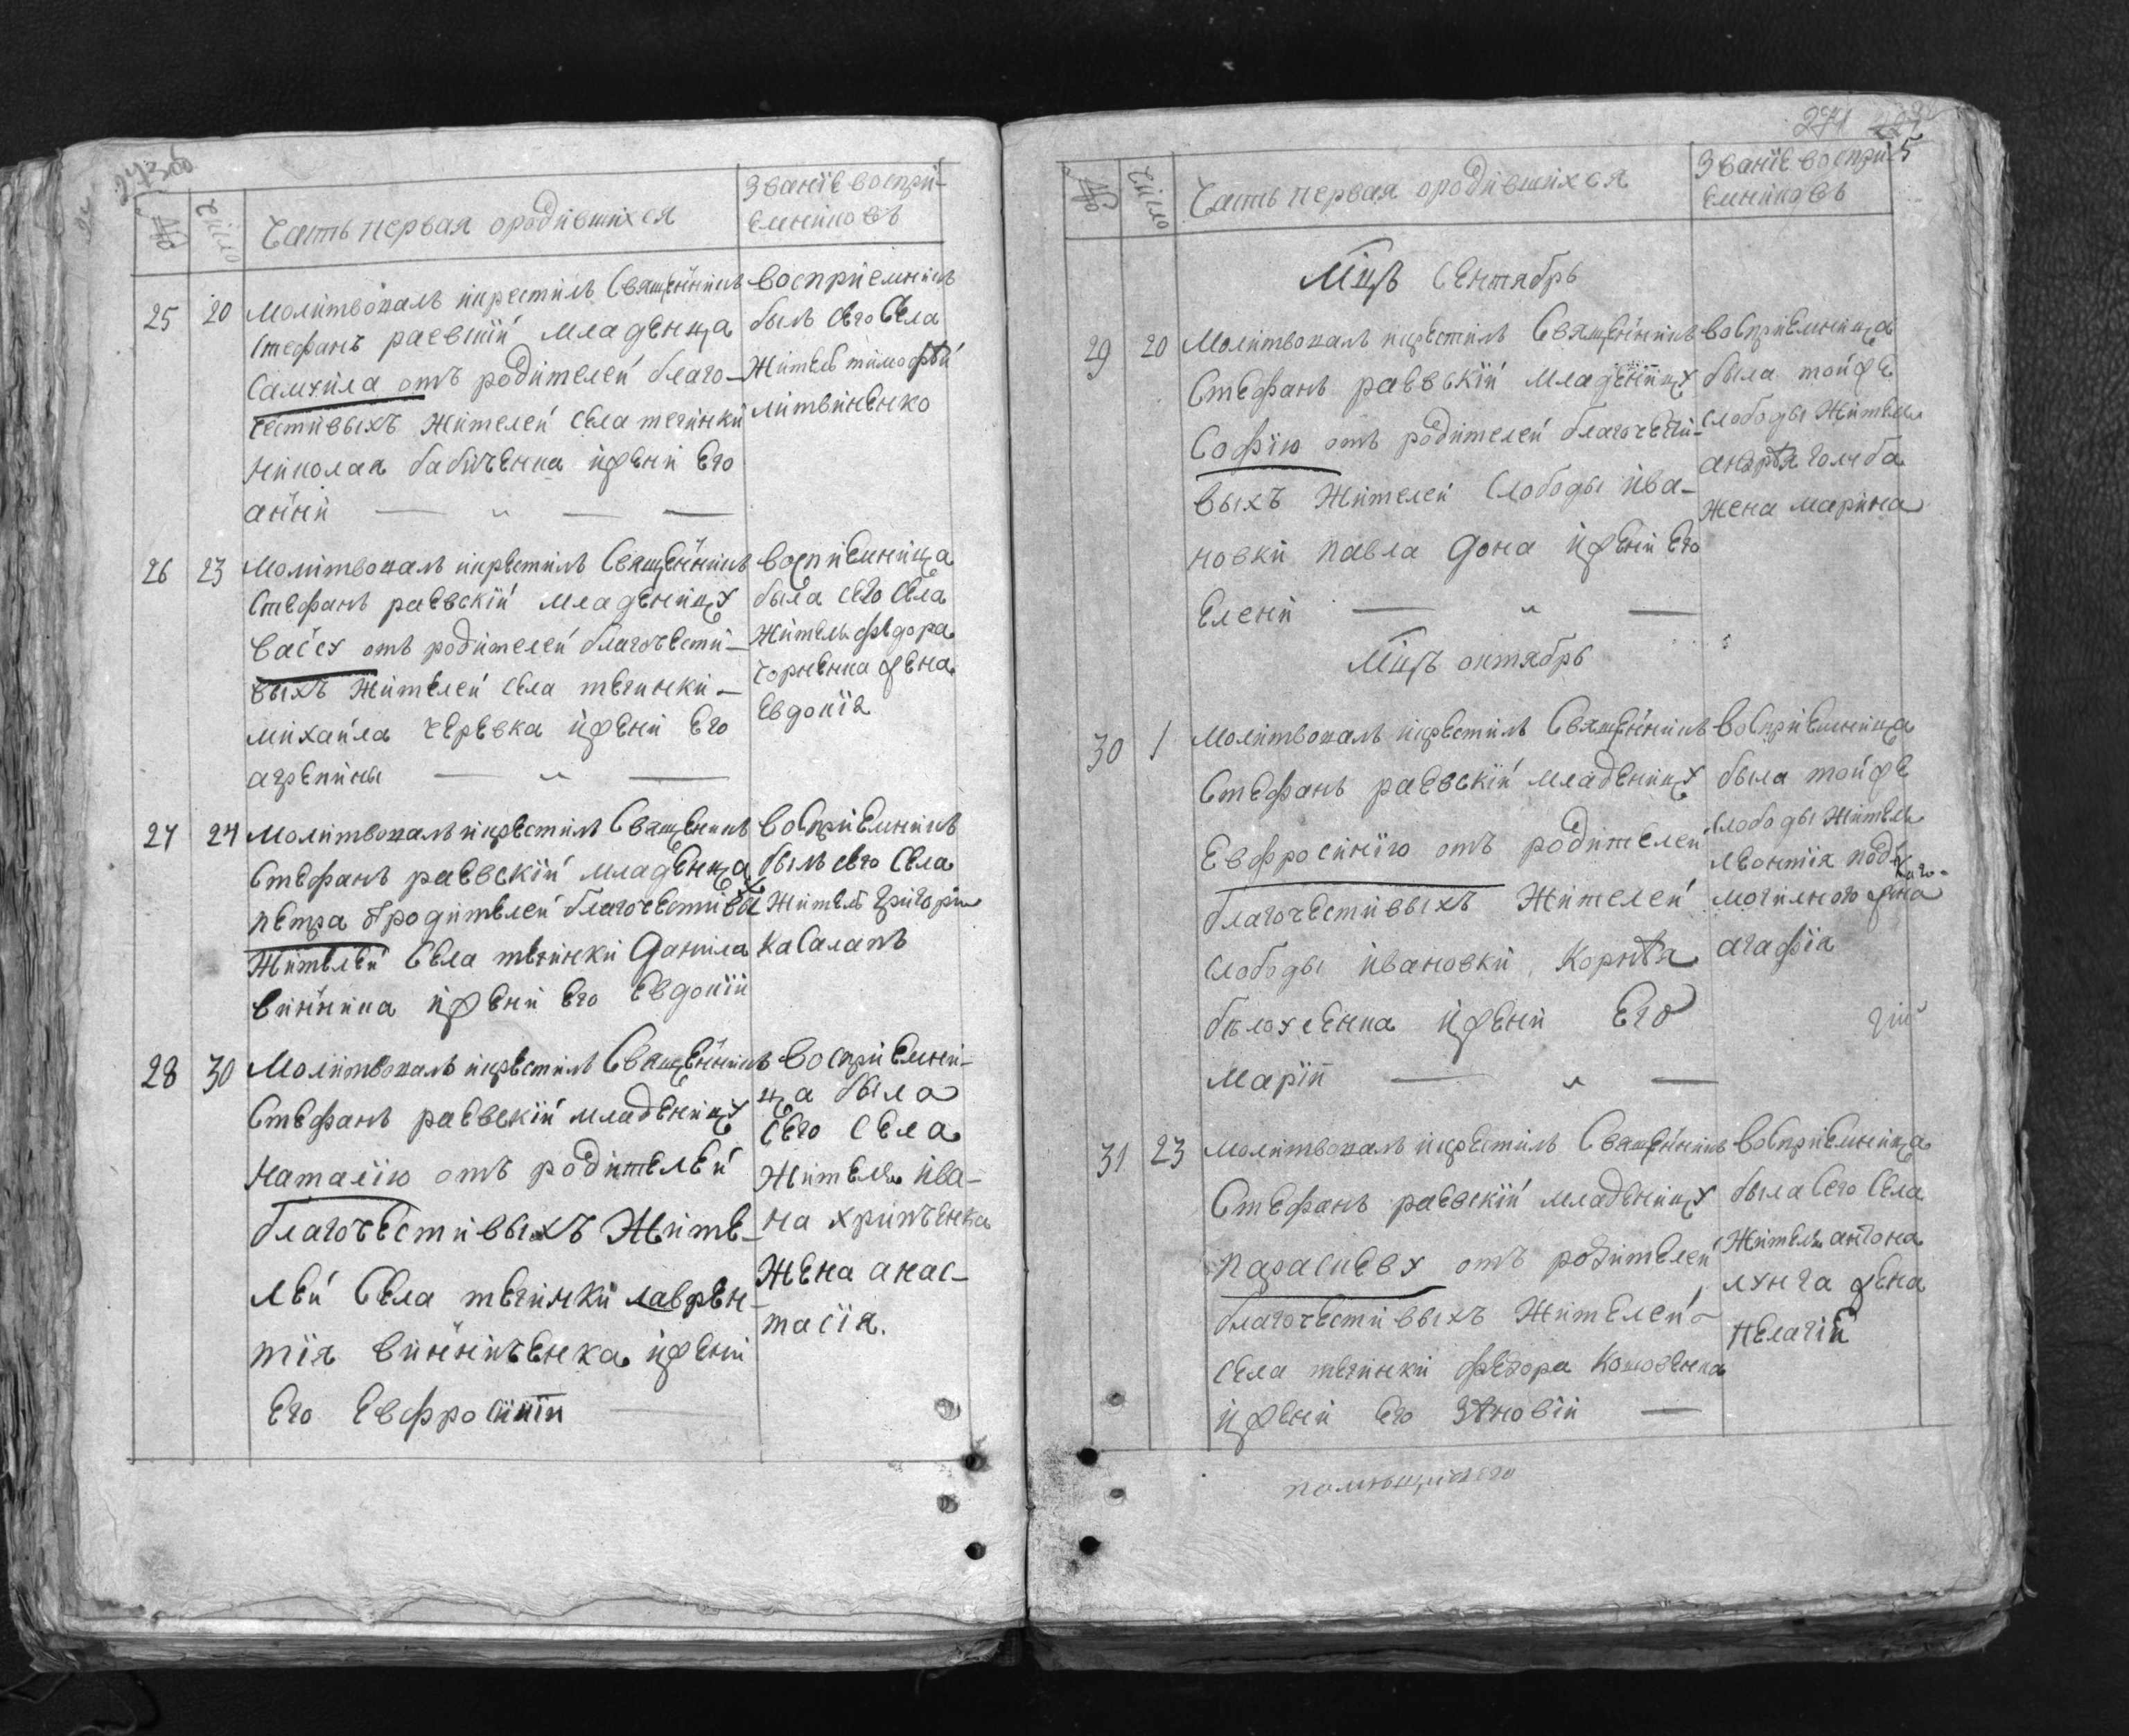 273об
№
Число
Часть первая ородившихся
Званїе воспри-
емниковъ
25 20 Молитвовалъ икрестилъ Священникъ
Стефанъ раевскїй младенца
Самуила отъ родителей благо-
честивыхъ Жителей Села тегинки
Николая бабиченка ижени Его
анни
восприемникъ
былъ сего Села
Житель тимофѣй
литвиненко
26 23 Молитвовалъ икрестилъ Священникъ
Стефанъ раевскїй младеницу
Вассу отъ родителей благочести-
выхъ Жителей села тегинки
михаила черевка ижени Его
агрепини
восприемница
была сего Села
Жителя федора
чорненка жена
Евдокїя
27 24 Молитвовалъ икрестилъ Священикъ
Стефанъ раевскїй младенца
петра ѿродителей благочестивых
Жителей Села тегинки Данила
винника ижени Его Евдокїи
восприемникъ
былъ сего Села
Житель григори
Касалапъ
28 30 Молитвовалъ икрестилъ Священникъ
Стефанъ раевскїй младеницу
Наталїю отъ родителей
благочестивыхъ Жите-
лей Села тегинки лаврен-
тїя винниченка ижени
Его Евфросинїи
восприемни-
ца была
сего Села
Жителя ива-
на хрипченка
Жена анас-
тасїя.
274
5
№
Число
Часть первая ородившихся
Званїе воспри
емниковъ
Мцъ Сентябрь
29 20 Молитвовалъ икрестилъ Священникъ
Стефанъ раевскїй младеницу
Софїю отъ родителей благочести-
выхъ Жителей Слободы ива-
новки павла Дона ижени Его
Елени
восприемница
была тойже
Слободы Жителя
андрѣя голуба
жена марина
Мцъ октябрь
30 1 Молитвовалъ икрестилъ Священникъ
Стефанъ раевскїй младеницу
Евфросинїю отъ родителей
благочестивыхъ Жителей
слободы ивановки Корнѣя
бѣлоусенка ижени Его
Марїи
восприемница
была тойже
слободы Жителя
леонтїя
могилного жена
агафїя
31 23 Молитвовалъ икрестилъ Священникъ
Стефанъ раевскїй младеницу
параскеву отъ родителей
благочестивыхъ Жителей
села тегинки федора
ижени его Зѣновїи
восприемница
была сего Села
Жителя антона
жена
пелагїи